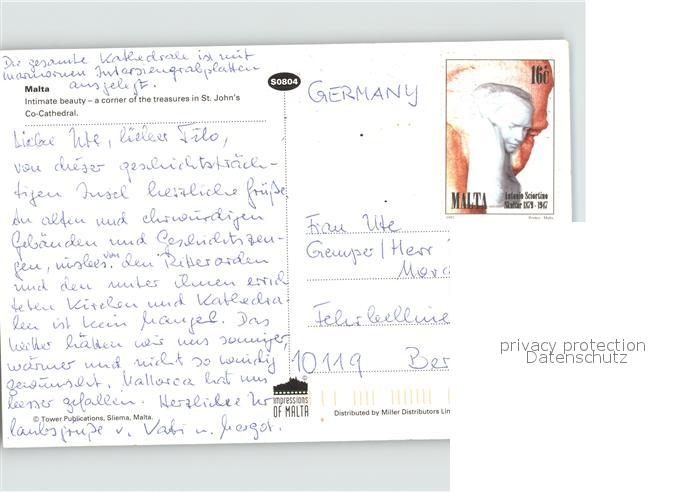 Die gesamte Kathedrale ist mit
marmornen Intarsiengrabplatten
ausgelegt.
Malta
Intimate beauty – a corner of the treasures in St. John's
Co-Cathedral.
Liebe Ute, lieber Tilo,
von dieser geschichtsträch-
tigen Insel herzliche Grüße.
An alten und ehrwürdigen
Gebäuden und Geschichtszeu-
gen, insbes. von den Ritterorden
und den unter ihnen errich
teten Kirchen und Kathedra-
len ist kein Mangel. Das
Wetter hätten wir uns sonniger,
wärmer und nicht so windig
gewünscht. Mallorca hat uns
besser gefallen. Herzliche Ur
laubsgrüße v. Vati u. Margot.
© Tower Publications, Sliema, Malta.
S0804
GERMANY
16c
MALTA
Antonio Sciortino
Skultur 1879 - 1947
1997
Printex - Malta
Frau Ute
Gemper/Herr
Fehrbelline
10119 Ber
impressions
OF MALTA
Distributed by Miller Distributors Lin
privacy protection
Datenschutz